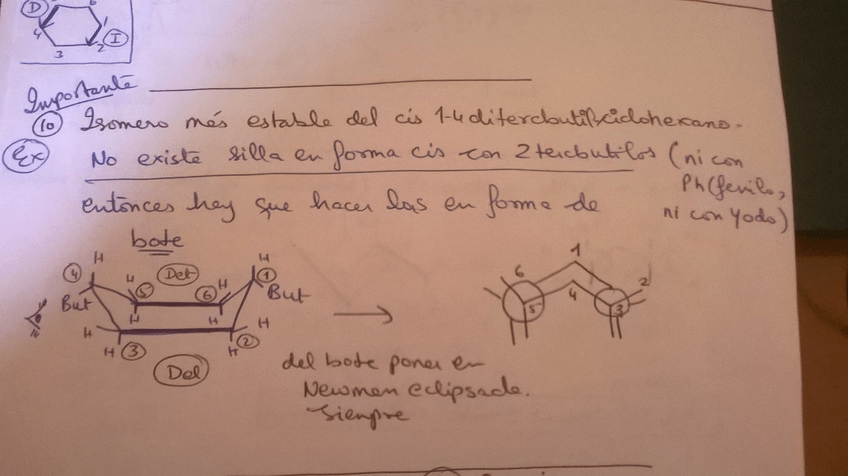 D
4
3
2
I
Importante
10 Isomero más estable del cis 1-4 ditercbutilciclohexano.
Ex No existe silla en forma cis con 2 tercbutilos (ni con
Ph (fenilo,
ni con Yodo)
entonces hay que hacerlas en forma de
bote
H
H
4
Det
1
But
H
5
6
H
But
H
H
H
H
H
3
H
2
Del
6
1
2
5
4
3
del bote poner en
Newman eclipsada.
Siempre